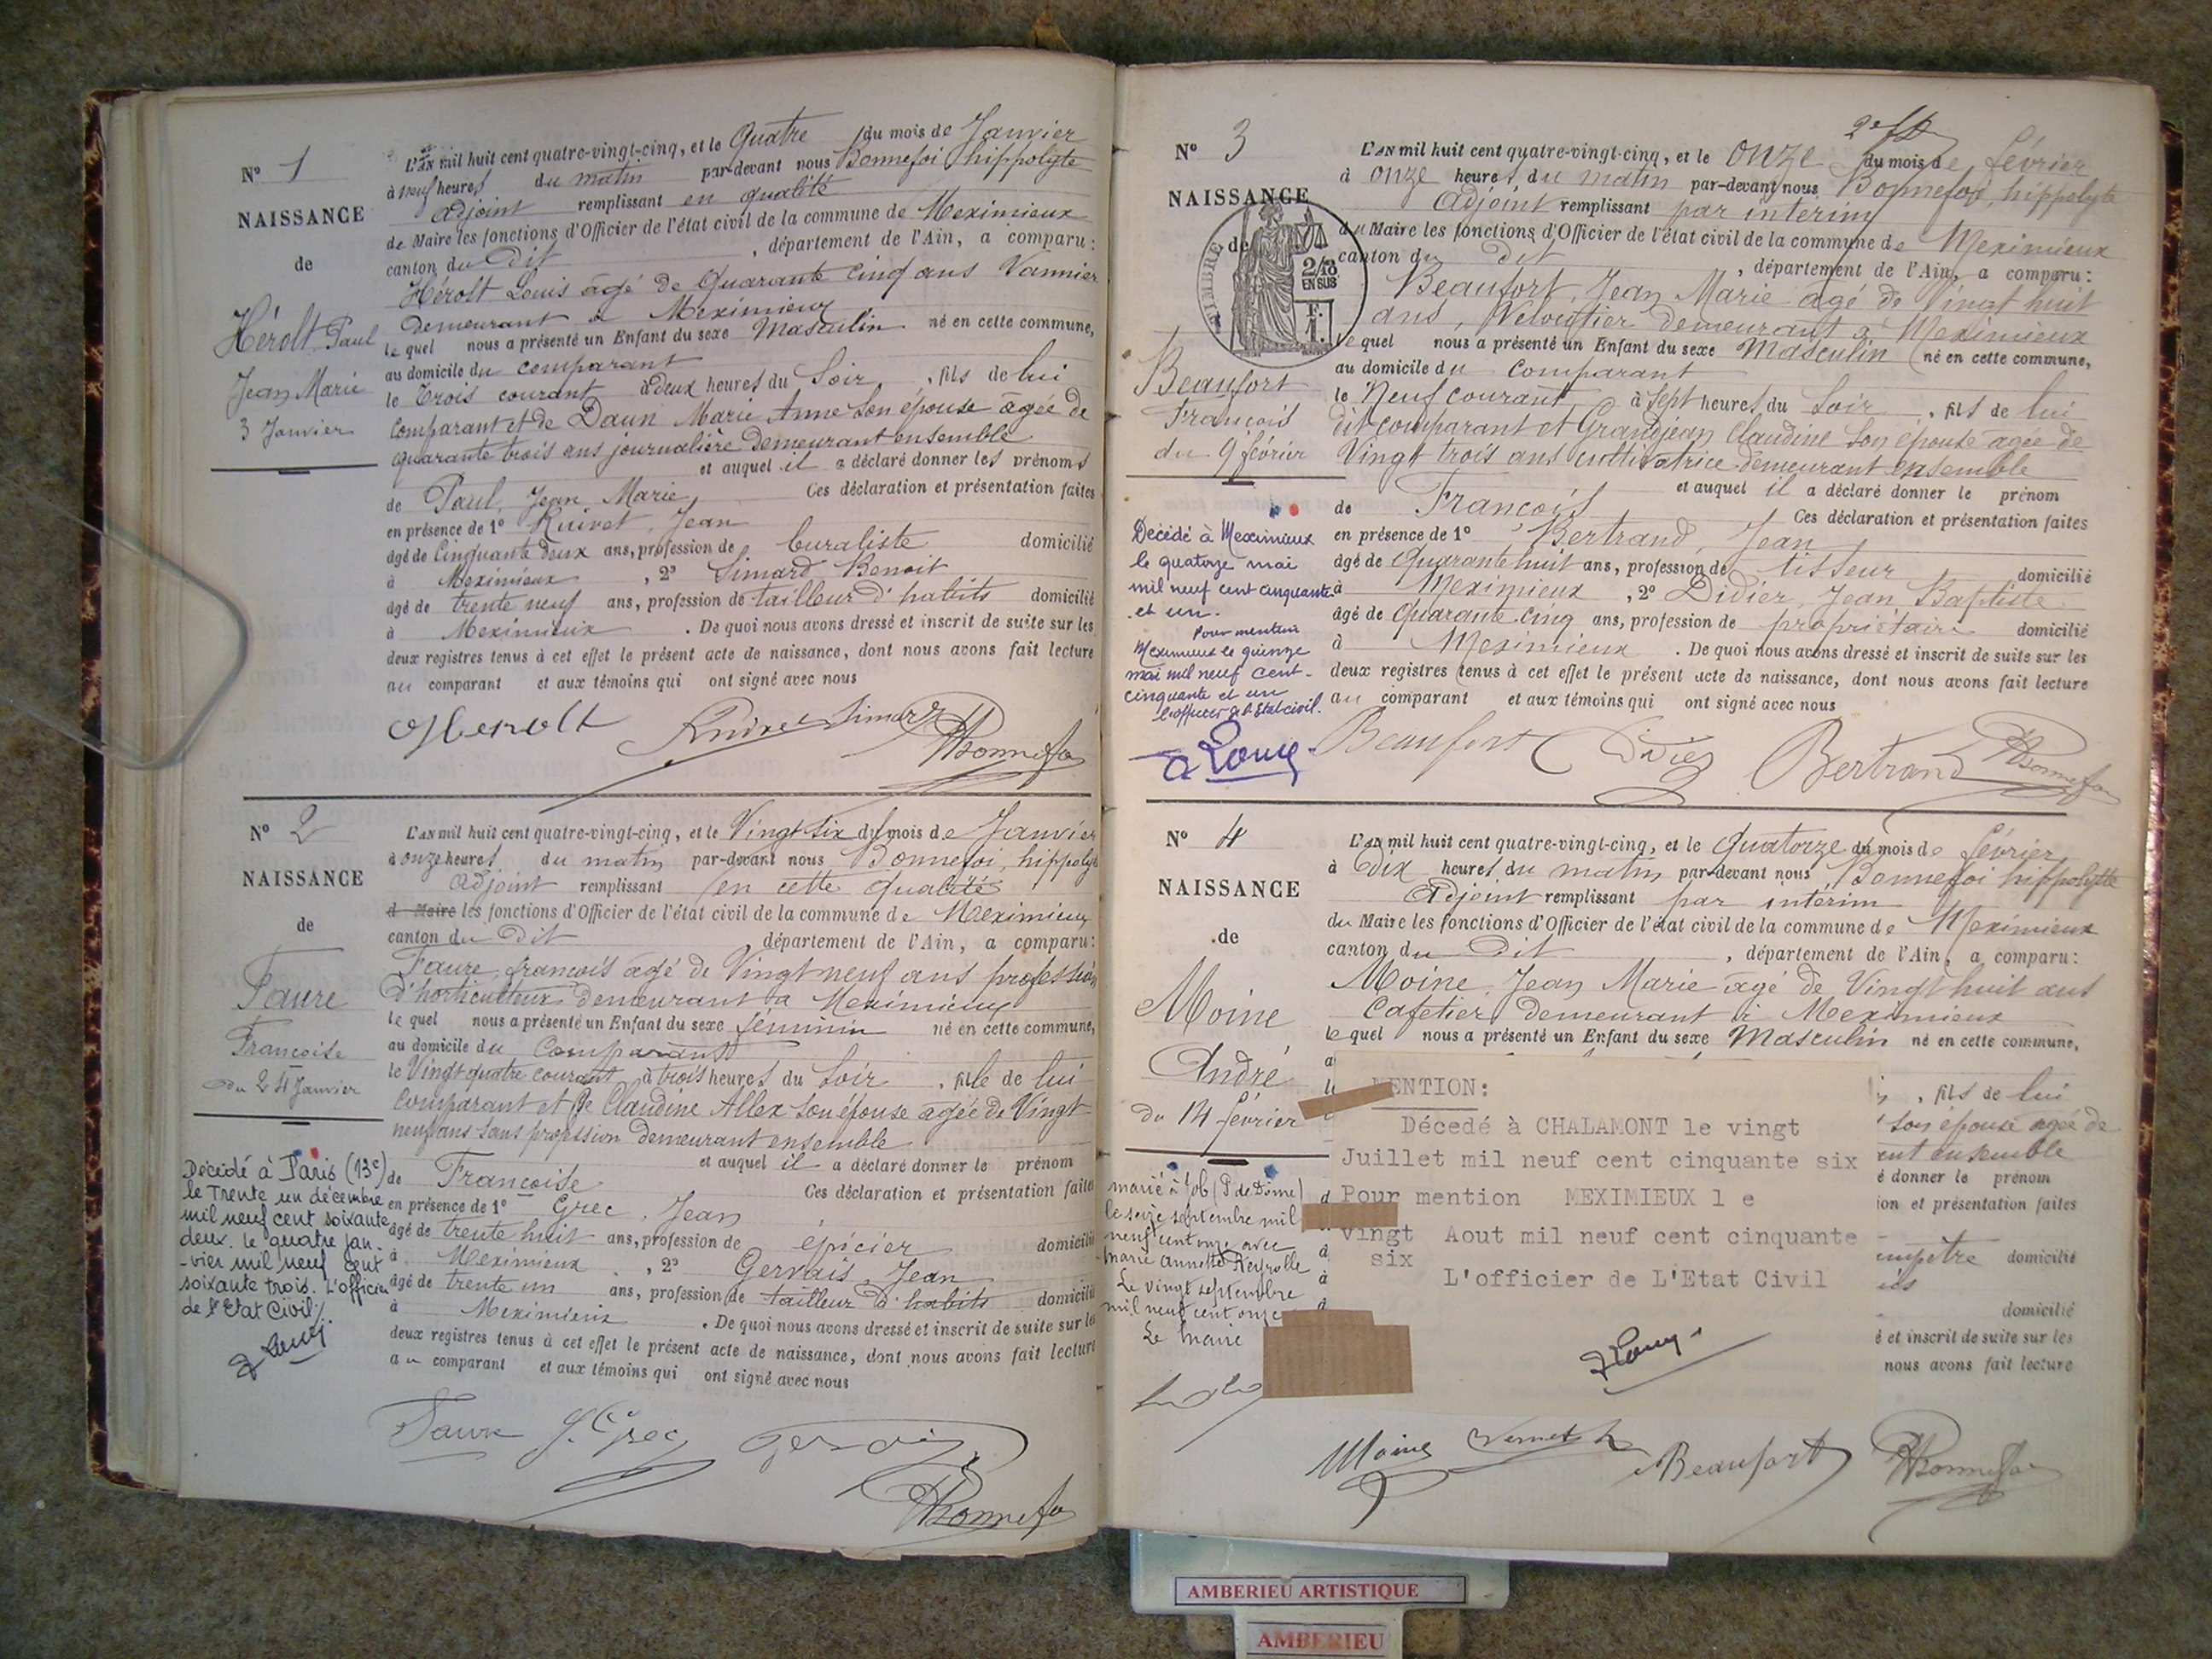 N° 1
NAISSANCE
de
Hérolt Paul
Jean Marie
3 Janvier
L'AN mil huit cent quatre-vingt-cinq, et le Quatre du mois de Janvier
à neuf heures du matin par-devant nous Bonnefoi hippolyte
adjoint remplissant en qualité
de Maire les fonctions d'Officier de l'état civil de la commune de Meximieux
canton du Dit , département de l'Ain, a comparu:
Hérolt Louis âgé de Quarante Cinq ans Vannier
demeurant à Meximieux
le quel nous a présenté un Enfant du sexe Masculin né en cette commune,
au domicile du comparant
le Trois courant à deux heures du Soir , fils de lui
Comparant et de Daun Marie Anne son épouse âgée de
quarante trois ans journalière demeurant ensemble
et auquel il a déclaré donner les prénoms
de Paul, Jean Marie, Ces déclaration et présentation faites
en présence de 1° Ruivet, Jean
âgé de Cinquante deux ans, profession de buraliste domicilié
à Meximieux , 2° Simard Benoit
âgé de trente neuf ans, profession de tailleur d'habits domicilié
à Meximieux . De quoi nous avons dressé et inscrit de suite sur les
deux registres tenus à cet effet le présent acte de naissance, dont nous avons fait lecture
au comparant et aux témoins qui ont signé avec nous
Herolt Simard Bonnefoi
N° 2
NAISSANCE
de
Faure
Françoise
du 24 Janvier
L'AN mil huit cent quatre-vingt-cinq, et le Vingt six du mois de Janvier
à onze heures du matin par-devant nous Bonnefoi, hippolyte
Adjoint remplissant en cette qualité
d Maire les fonctions d'Officier de l'état civil de la commune de Meximieux
canton du Dit département de l'Ain, a comparu:
Faure, françois âgé de Vingt neuf ans profession
d'horticulteur demeurant à Meximieux
le quel nous a présenté un Enfant du sexe féminin né en cette commune,
au domicile du Comparant
le Vingt quatre courant à trois heures du Soir , fille de lui
Comparant et de Claudine Allex son épouse âgée de Vingt
neuf ans sans profession demeurant ensemble
et auquel il a déclaré donner le prénom
de Françoise Ces déclaration et présentation faites
en présence de 1° Grec, Jean
âgé de trente huit ans, profession de épicier domicilié
à Meximieux , 2° Gervais, Jean
âgé de trente un ans, profession de tailleur d'habits domicilié
à Meximieux . De quoi nous avons dressé et inscrit de suite sur les
deux registres tenus à cet effet le présent acte de naissance, dont nous avons fait lecture
au comparant et aux témoins qui ont signé avec nous
Décédé à Paris (13e)
le Trente un décembre
mil neuf cent soixante
deux. Le quatre jan-
-vier mil neuf cent
soixante trois. L'officier
de l'Etat Civil.
Faure J. Grec Gervais
Bonnefoi
N° 3
NAISSANCE
de
TIMBRE
2/10
EN SUS
F.
1.
Beaufort
François
du 9 février
L'AN mil huit cent quatre-vingt-cinq, et le onze du mois de février
à onze heures du matin par-devant nous Bonnefoi, hippolyte
Adjoint remplissant par intérim
du Maire les fonctions d'Officier de l'état civil de la commune de Meximieux
canton du dit , département de l'Ain, a comparu:
Beaufort, Jean Marie âgé de Vingt huit
ans, Veloutier demeurant à Meximieux
le quel nous a présenté un Enfant du sexe Masculin né en cette commune,
au domicile du comparant
le Neuf courant à sept heures du Soir , fils de lui
dit comparant et Grandjean Claudine son épouse âgée de
Vingt trois ans cultivatrice demeurant ensemble
et auquel il a déclaré donner le prénom
de François Ces déclaration et présentation faites
en présence de 1° Bertrand, Jean
âgé de Quarante huit ans, profession de tisseur domicilié
à Meximieux , 2° Didier, Jean Baptiste
âgé de Quarante cinq ans, profession de propriétaire domicilié
à Meximieux . De quoi nous avons dressé et inscrit de suite sur les
deux registres tenus à cet effet le présent acte de naissance, dont nous avons fait lecture
au comparant et aux témoins qui ont signé avec nous
Décédé à Meximieux
le quatorze mai
mil neuf cent cinquante
et un.
Pour mention
Meximieux le quinze
mai mil neuf cent-
cinquante et un
L'officier de l'Etat civil.
Beaufort Didier Bertrand Bonnefoi
N° 4
NAISSANCE
de
Moine
André
du 14 février
L'AN mil huit cent quatre-vingt-cinq, et le Quatorze du mois de février
à Dix heures du matin par-devant nous Bonnefoi hippolyte
Adjoint remplissant par intérim
du Maire les fonctions d'Officier de l'état civil de la commune de Meximieux
canton du Dit , département de l'Ain, a comparu:
Moine, Jean Marie âgé de Vingt huit ans
Cafetier demeurant à Meximieux
le quel nous a présenté un Enfant du sexe Masculin né en cette commune,
, fils de lui
son épouse âgée de
ent ensemble
é donner le prénom
ion et présentation faites
mpêtre domicilié
domicilié
é et inscrit de suite sur les
nous avons fait lecture
MENTION:
Décedé à CHALAMONT le vingt
Juillet mil neuf cent cinquante six
Pour mention MEXIMIEUX l e
vingt Aout mil neuf cent cinquante
six
L'officier de L'Etat Civil
marié à Job (P. de Dôme)
le seize septembre mil
neuf cent onze avec
marie annette Reyrolle
Le vingt septembre
mil neuf cent onze
Le maire
Moine Beaufort Bonnefoi
AMBERIEU ARTISTIQUE
AMBERIEU